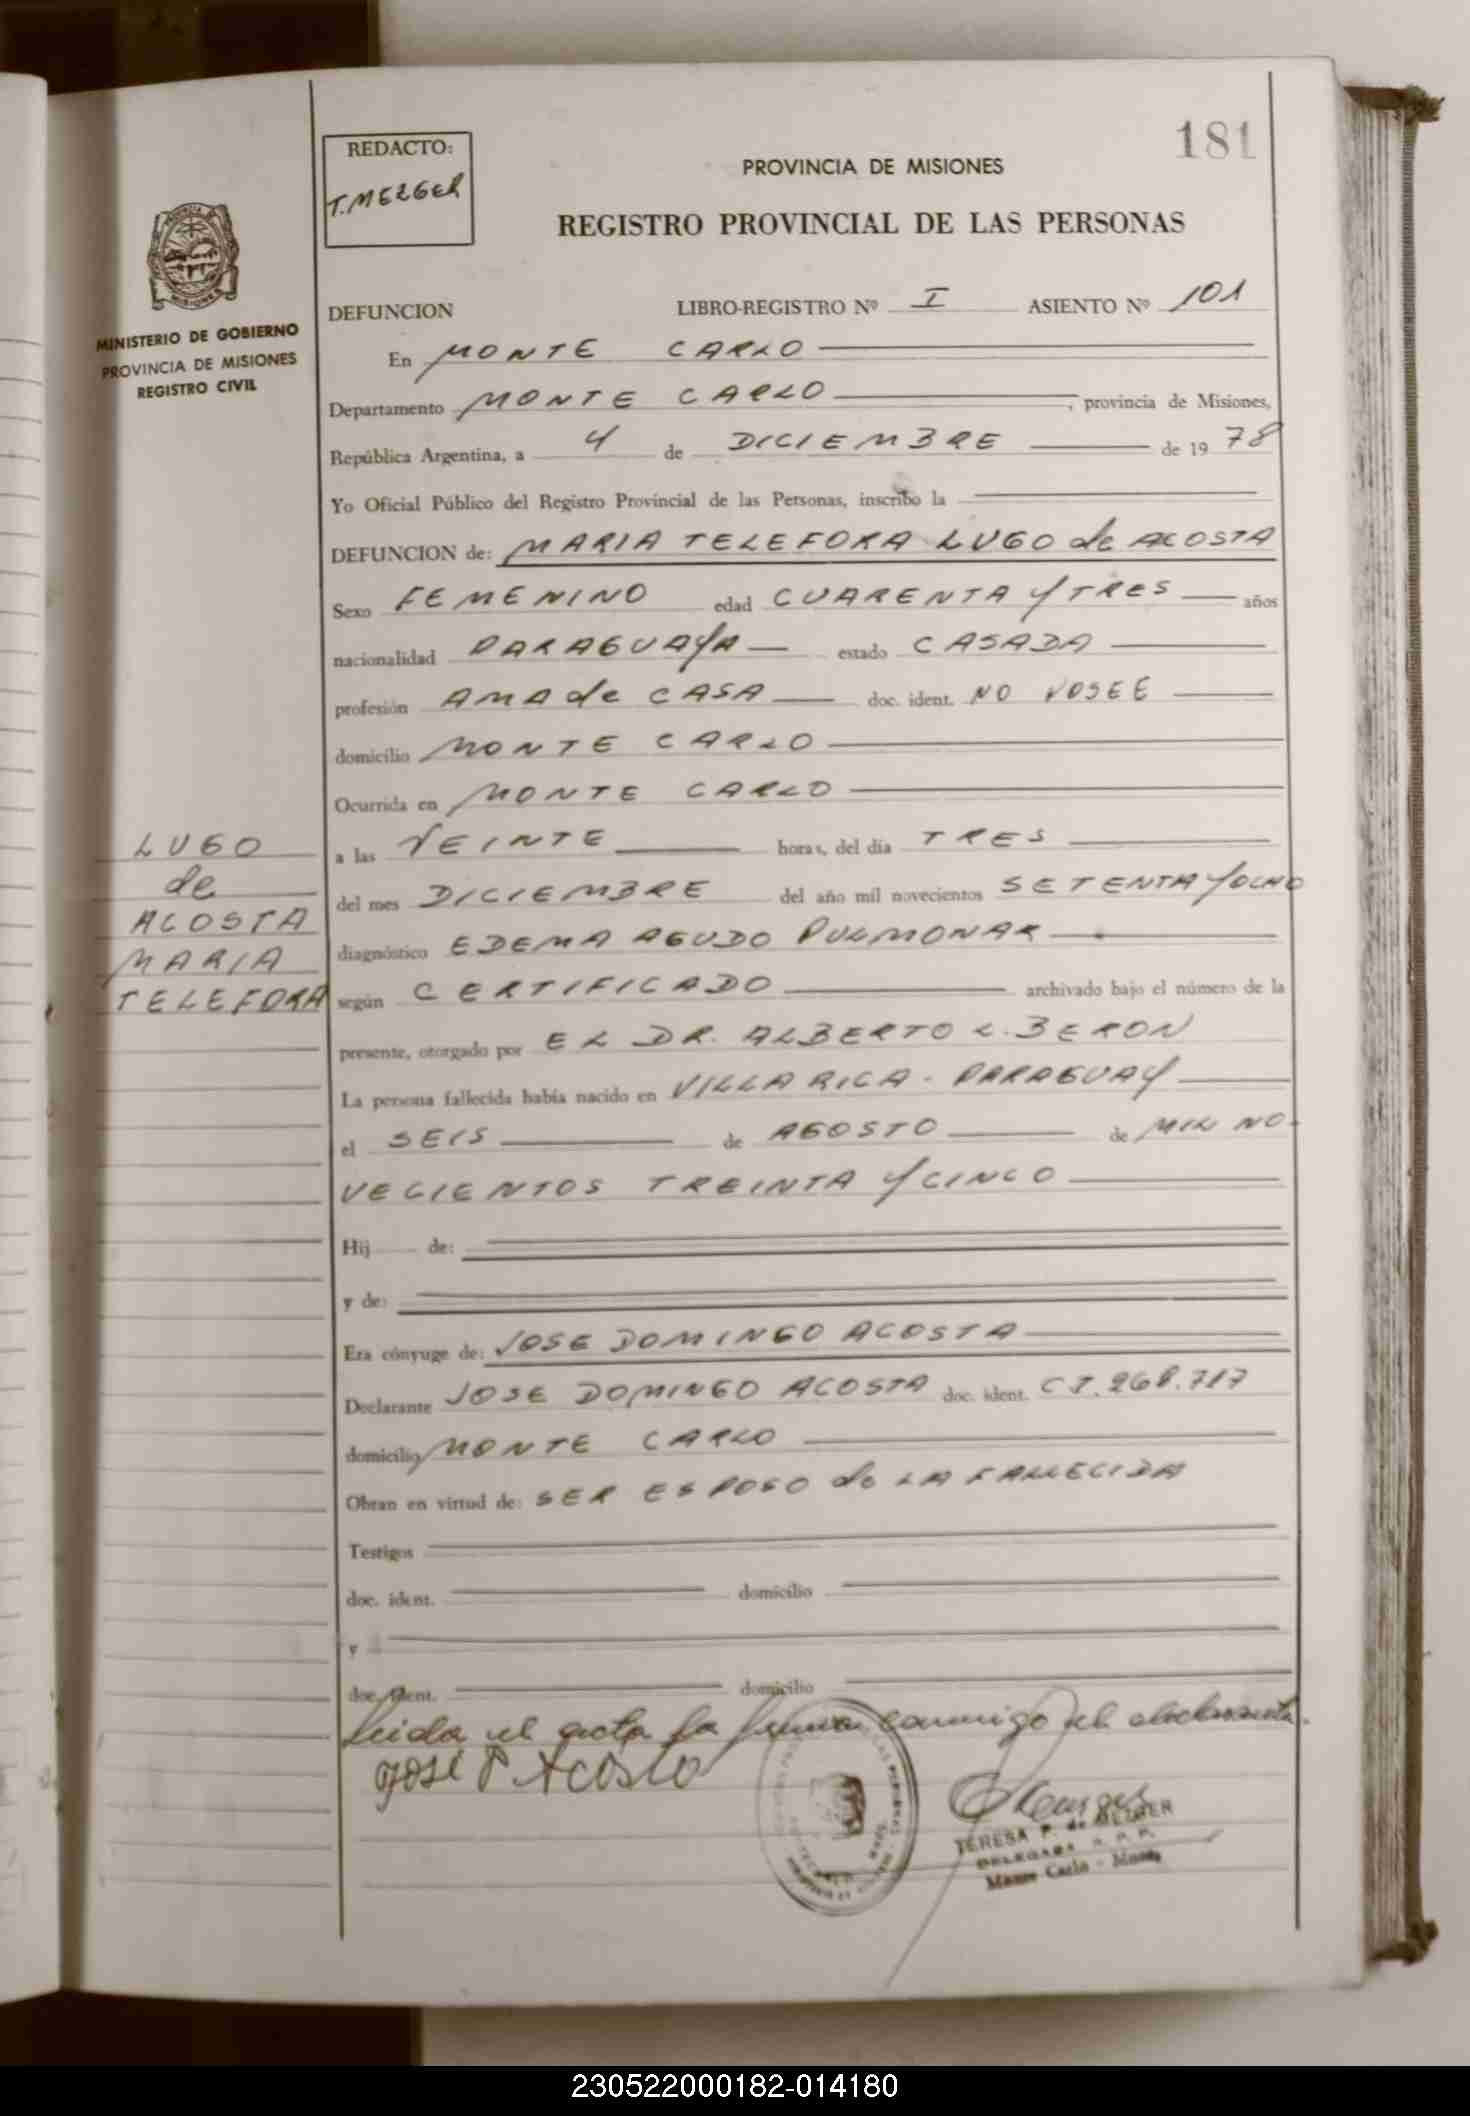 181
REDACTO:
T. MEZGER
PROVINCIA DE MISIONES
REGISTRO PROVINCIAL DE LAS PERSONAS
MINISTERIO DE GOBIERNO
PROVINCIA DE MISIONES
REGISTRO CIVIL
DEFUNCION LIBRO-REGISTRO Nº I ASIENTO Nº 101
En MONTE CARLO
Departamento MONTE CARLO, provincia de Misiones,
República Argentina, a 4 de DICIEMBRE de 1978
Yo Oficial Público del Registro Provincial de las Personas, inscribo la
DEFUNCION de: MARIA TELEFORA LUGO de ACOSTA
Sexo FEMENINO edad CUARENTA Y TRES años
nacionalidad PARAGUAYA estado CASADA
profesión AMA de CASA doc. ident. NO POSEE
domicilio MONTE CARLO
Ocurrida en MONTE CARLO
LUGO
de
ACOSTA
MARIA
TELEFORA
a las VEINTE horas, del día TRES
del mes DICIEMBRE del año mil novecientos SETENTA Y OCHO
diagnóstico EDEMA AGUDO PULMONAR
según CERTIFICADO archivado bajo el número de la
presente, otorgado por EL DR. ALBERTO L. BERON
La persona fallecida había nacido en VILLA RICA - PARAGUAY
el SEIS de AGOSTO de MIL NO-
VECIENTOS TREINTA Y CINCO
Hij de:
y de:
Era cónyuge de: JOSE DOMINGO ACOSTA
Declarante JOSE DOMINGO ACOSTA doc. ident. C.I. 268.717
domicilio MONTE CARLO
Obran en virtud de: SER ESPOSO de LA FALLECIDA
Testigos
doc. ident. domicilio
y
doc. ident. domicilio
Leida el acta la firma conmigo el declarante.
José D Acosta
TERESA P. de MEZGER
DELEGADA R. P. P.
Monte Carlo - Mnes.
230522000182-014180